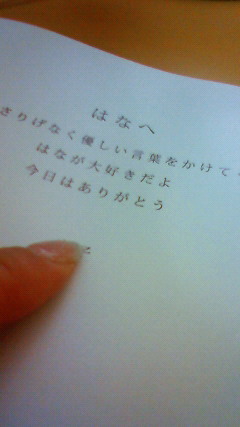 はなへ
さりげなく優しい言葉をかけて
はなが大好きだよ
今日はありがとう